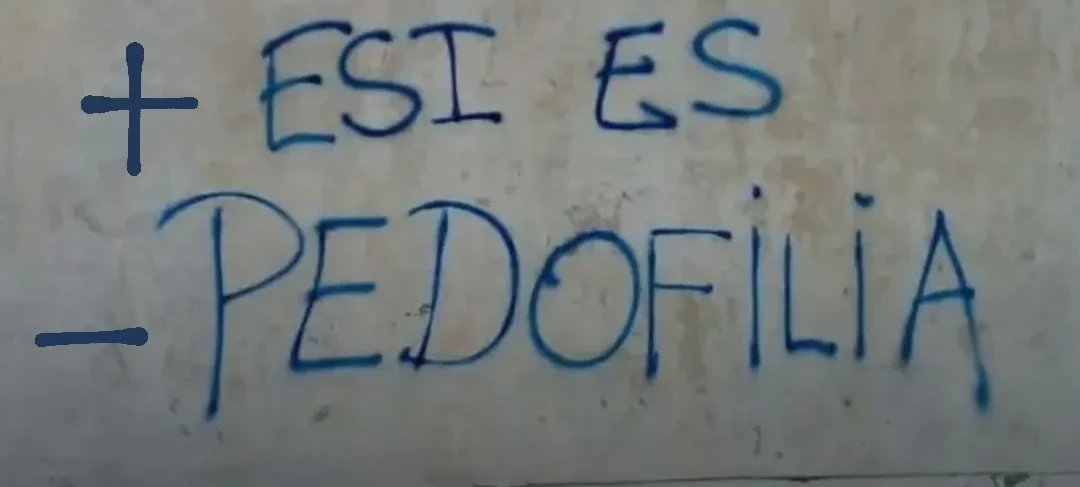 + ESI ES
- PEDOFiLiA